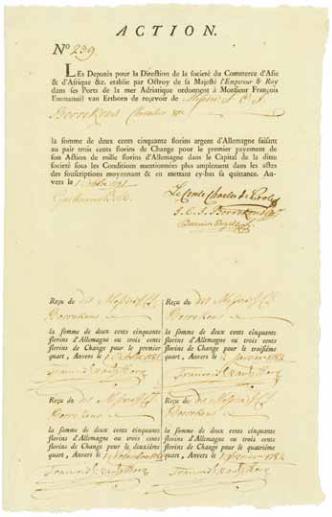 ACTION.
N° 239
LEs Deputés pour la Direction de la societé du Commerce d'Asie
& d'Afrique &c. etablie par Octroy de sa Majesté l'Empereur & Roy
dans ses Ports de la mer Adriatique ordonnent à Monsieur François
Emmanuel van Ertborn de reçevoir de Messieurs
Borrekens
la somme de deux cents cinquante florins argent d'Allemagne faisant
au pair trois cents florins de Change pour le premier payement de
son Action de mille florins d'Allemagne dans le Capital de la ditte
societé sous les Conditions mentionnées plus amplement dans les actes
des souscriptions moyennant & en mettant cy-bas sa quittance. An-
vers le 1781
Le Comte Charles de Proli
J. C. J. Borrekens
Reçu de des Messieurs
Borrekens
la somme de deux cents cinquante
florins d'Allemagne ou trois cents
florins de Change pour le premier
quart, Anvers le 1781
Reçu de des Messieurs
Borrekens
la somme de deux cents cinquante
florins d'Allemagne ou trois cents
florins de Change pour le troisième
quart, Anvers le
Reçu du des Messieurs
Borrekens
la somme de deux cents cinquante
florins d'Allemagne ou trois cents
florins de Change pour le deuxième
quart, Anvers le
Reçu de des Messieurs
Borrekens
la somme de deux cents cinquante
florins d'Allemagne ou trois cents
florins de Change pour le quatrième
quart, Anvers le